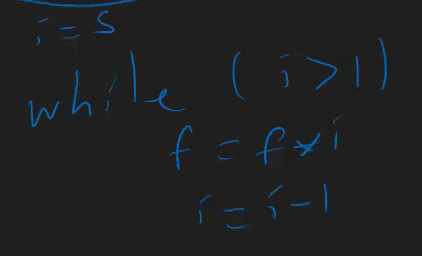 i = 5
while ( i > 1 )
f = f * i
i = i - 1